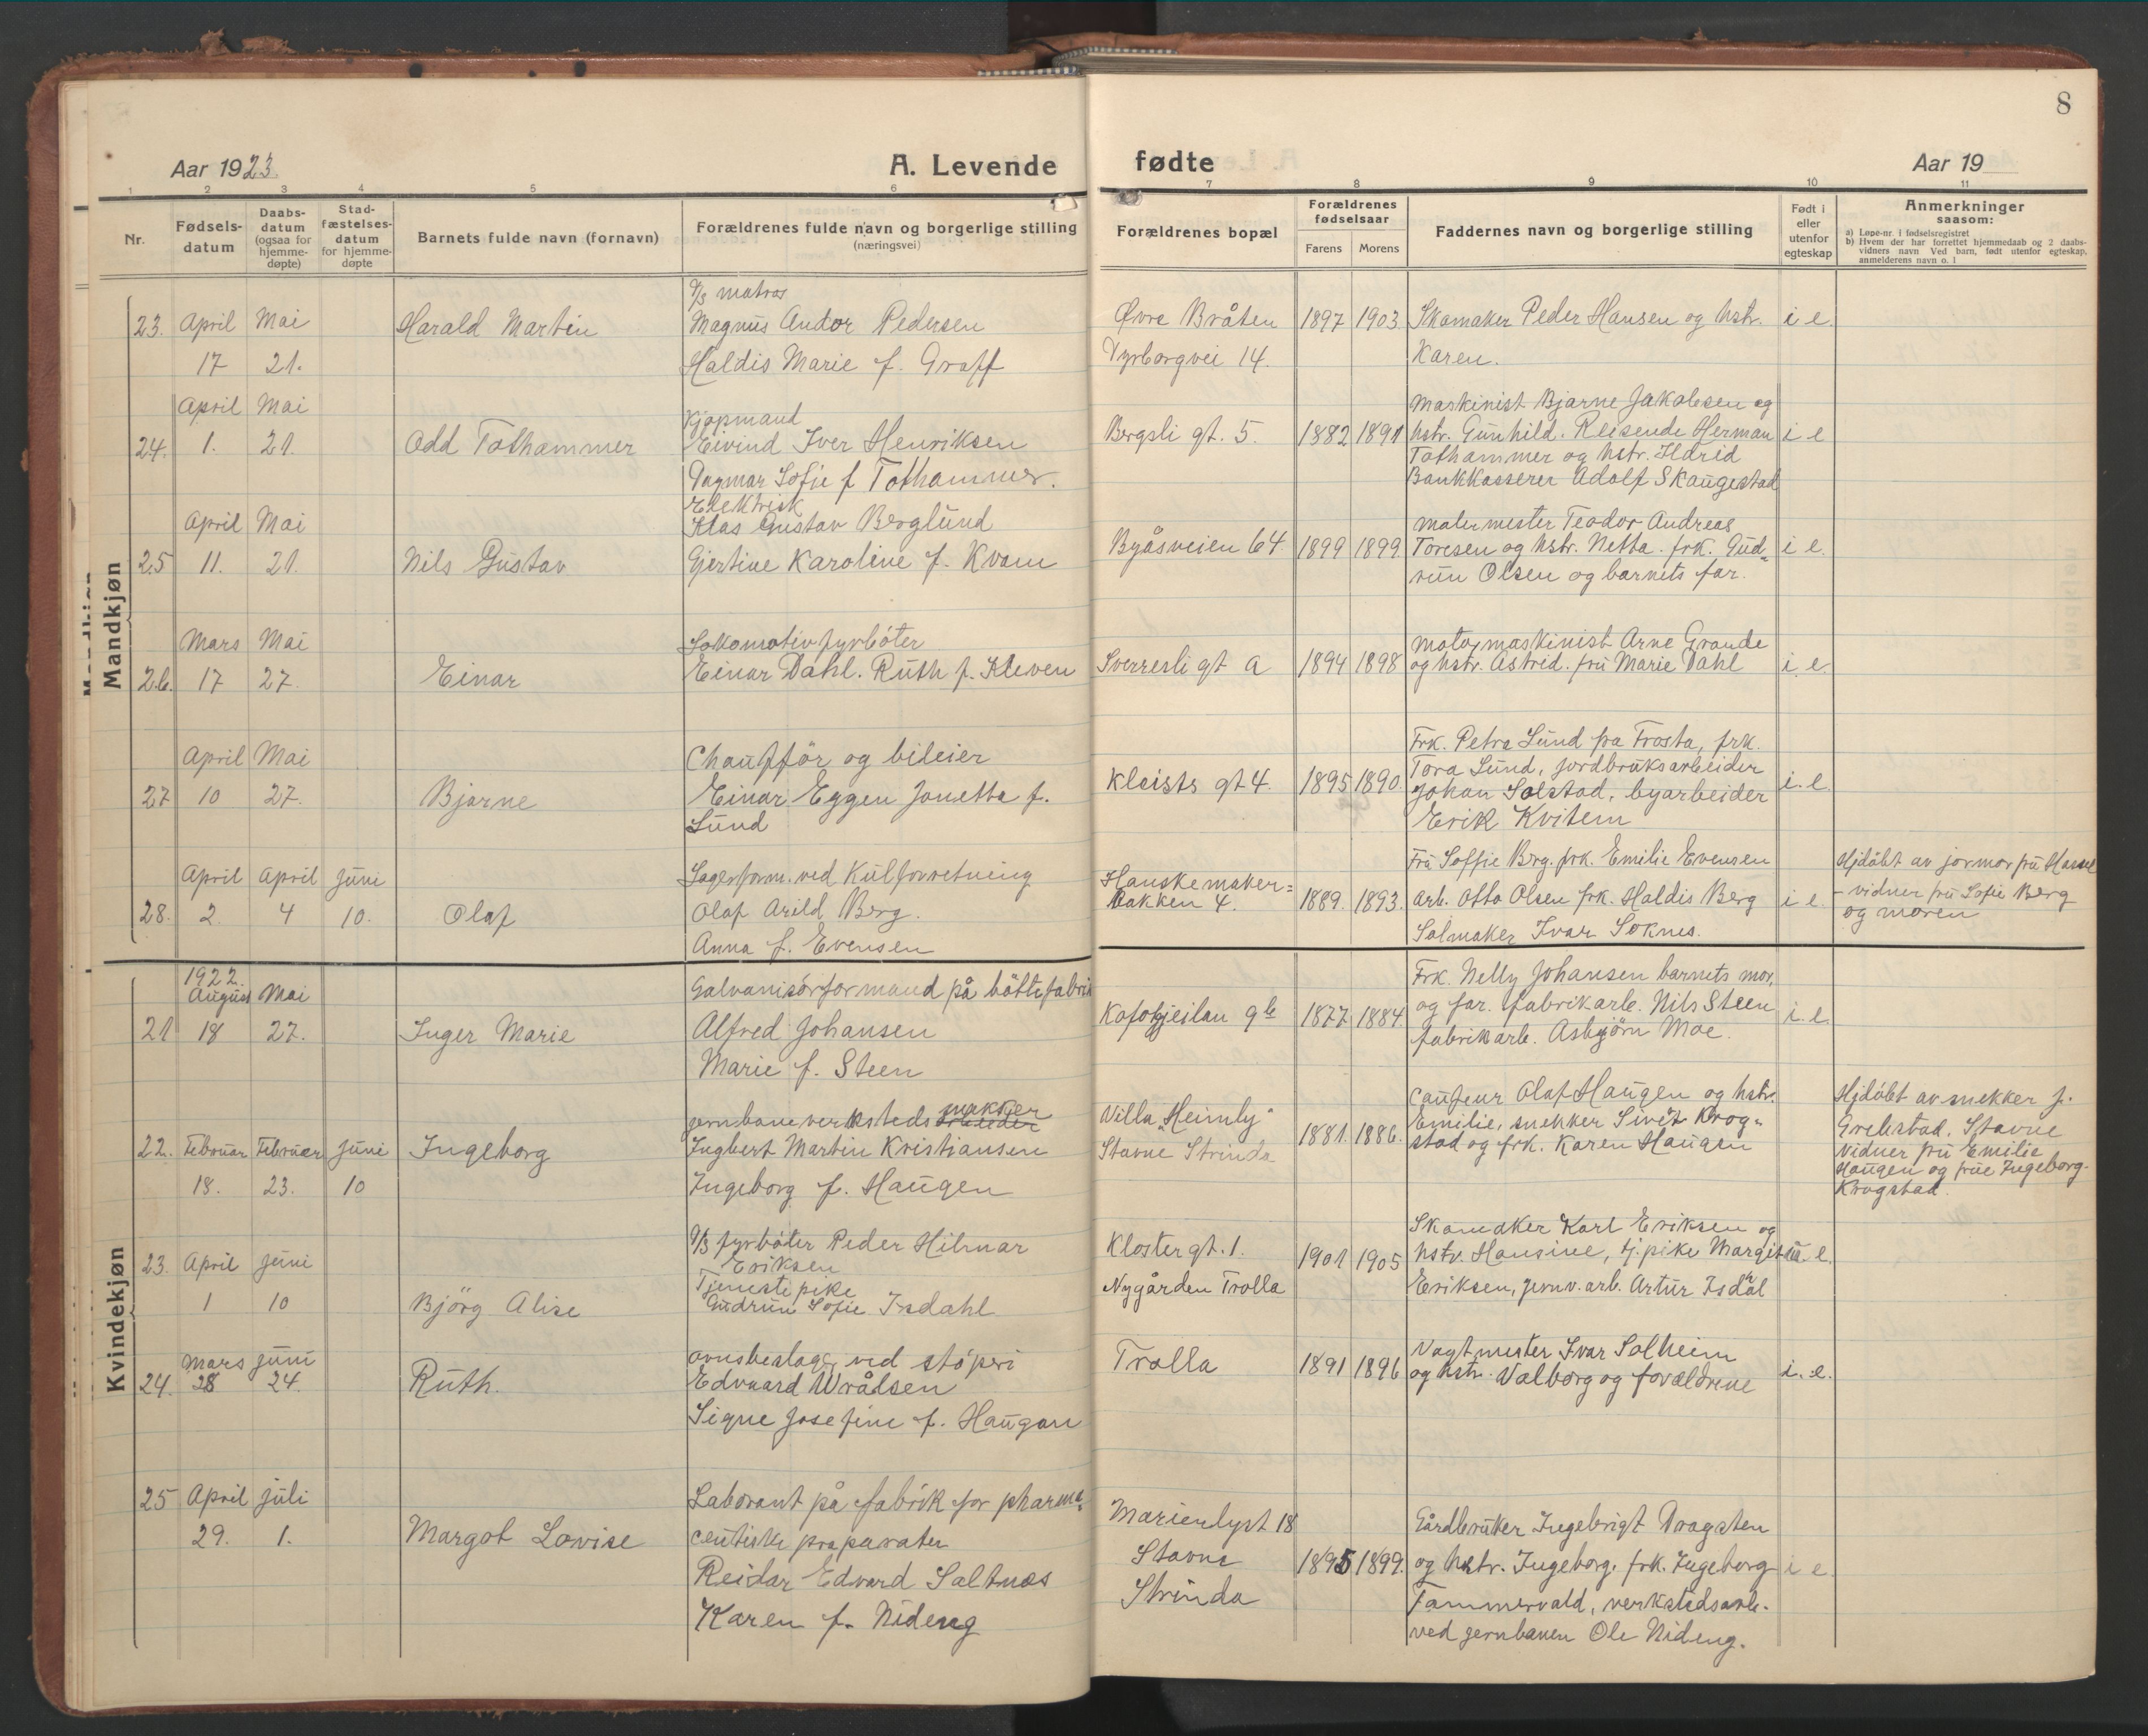 8
Aar 1923.
A. Levende
fødte
Aar 19
1 2 3 4 5 6 7 8 9 10 11
Nr.
Fødsels-
datum
Daabs-
datum
(ogsaa for
hjemme-
døpte)
Stad-
fæstelses-
datum
for hjemme-
døpte
Barnets fulde navn (fornavn)
Forældrenes fulde navn og borgerlige stilling
(næringsvei)
Forældrenes bopæl
Forældrenes
fødselsaar
Farens Morens
Faddernes navn og borgerlige stilling
Født i
eller
utenfor
egteskap
Anmerkninger
saasom:
a) Løpe-nr. i fødselsregistret
b) Hvem der har forrettet hjemmedaab og 2 daabs-
vidners navn Ved barn, født utenfor egteskap,
anmelderens navn o. l
Mandkjøn
23. April 17 Mai 21.
Harald Martin
matros
Magnus Andor Pedersen
Haldis Marie f. Graff
Øvre Bråten
Vyrborgvei 14.
1897 1903.
Skomaker Peder Hansen og hstr.
Karen.
i e.
24. April 1. Mai 21.
Odd Tothammer
Kjøpmand
Eivind Iver Henriksen
Dagmar Sofie f Tothammer.
Bergsli gt. 5.
1882 1891
Maskinist Bjarne Jakobsen og
hstr. Gunhild. Reisende Herman
Tothammer og hstr. Hdrid
Bankkasserer Adolf Skaugestad
i e
25 April 11. Mai 21.
Nils Gustav
Elektrisk
Klas Gustav Berglund
Gjertine Karoline f. Kvam
Byåsveien 64
1899 1899.
Malermester Teodor Andreas
Toresen og hstr. Netta. frk. Gud=
run Olsen og barnets far.
i e.
26. Mars 17 Mai 27.
Einar
Lokomotivfyrbøter
Einar Dahl. Ruth f. Kleven
Sverresli gt A
1894 1898
Motormaskinist Arne Grande
og hstr. Astrid. fru Marie Dahl
i. e.
27 April 10 Mai 27.
Bjarne
Chaufför og bileier
Einar Eggen Jonetta f.
Lund
Kleists gt 4.
1895 1890.
Frk. Petra Lund fra Frosta, frk.
Tora Lund, jordbruksarbeider
Johan Solstad, byarbeider
Erik Kvitem
i. e.
28. April 2. April 4 Juni 10.
Olaf
Lagerform. ved Kulforretning
Olaf Arild Berg.
Anna f. Evensen
Hanskemaker=
bakken 4.
1889. 1893.
Fru Soffie Berg. frk. Emilie Evensen
arb. Otto Olsen frk. Haldis Berg
Salmaker Ivar Soknes.
i e.
Hjdøbt av jormor fru Hassel
- vidner fru Sofie Berg
og moren
Kvindekjøn
21 1922. August 18 Mai 27.
Inger Marie
Galvanisørformand på bøttefabrik
Alfred Johansen
Marie f. Steen
1877 1884.
Frk. Nelly Johansen barnets mor,
og far. fabrikarb. Nils Steen
fabrikarb. Asbjørn Moe.
i. e.
22. Februar 18. Februar 23. Juni 10
Ingeborg
jernbaneverksteds snekker
Ingbert Martin Kristiansen
Ingeborg f. Haugen
Villa "Heimly"
Stavne Strinda
1881. 1886.
Caufeur Olaf Haugen og hstr.
Emilie, snekker Sivert Krog=
stad og frk. Karen Haugen
Hjdøbt av snekker f.
Grebstad, Stavne
vidner fru Emilie
Haugen og frue Ingeborg
Krogstad.
23. April 1 Juni 10
Bjørg Alise
fyrbøter Peder Hilmar
Eriksen
Tjenestepike
Gudrun Sofie Isdahl
Kloster gt. 1.
Nygården Trolla
1901 1905
Skomaker Karl Eriksen og
hstr. Hansine, tj.pike Margit
Eriksen, jernv. arb. Artur Isdal
u. e.
24. Mars 28 Juni 24.
Ruth.
ovnsbeslager ved støperi
Edvard Wrålsen
Signe Josefine f. Haugan
Trolla
1891 1896
Vagtmester Ivar Solheim
og hstr. Valborg og forældrene
i. e.
25 April 29. Juli 1.
Margot Lovise
Laborant på fabrik for pharma=
ceutiske preparater
Reidar Edvard Saltnes
Karen f. Nideng
Marienlyst 18
Stavne
Strinda
1895 1899.
Gårdbruker Ingebrigt Dragsten
og hstr. Ingeborg. frk. Ingeborg
Tammervald, verkstedsarb.
ved jernbanen Ole Nideng.
i e.